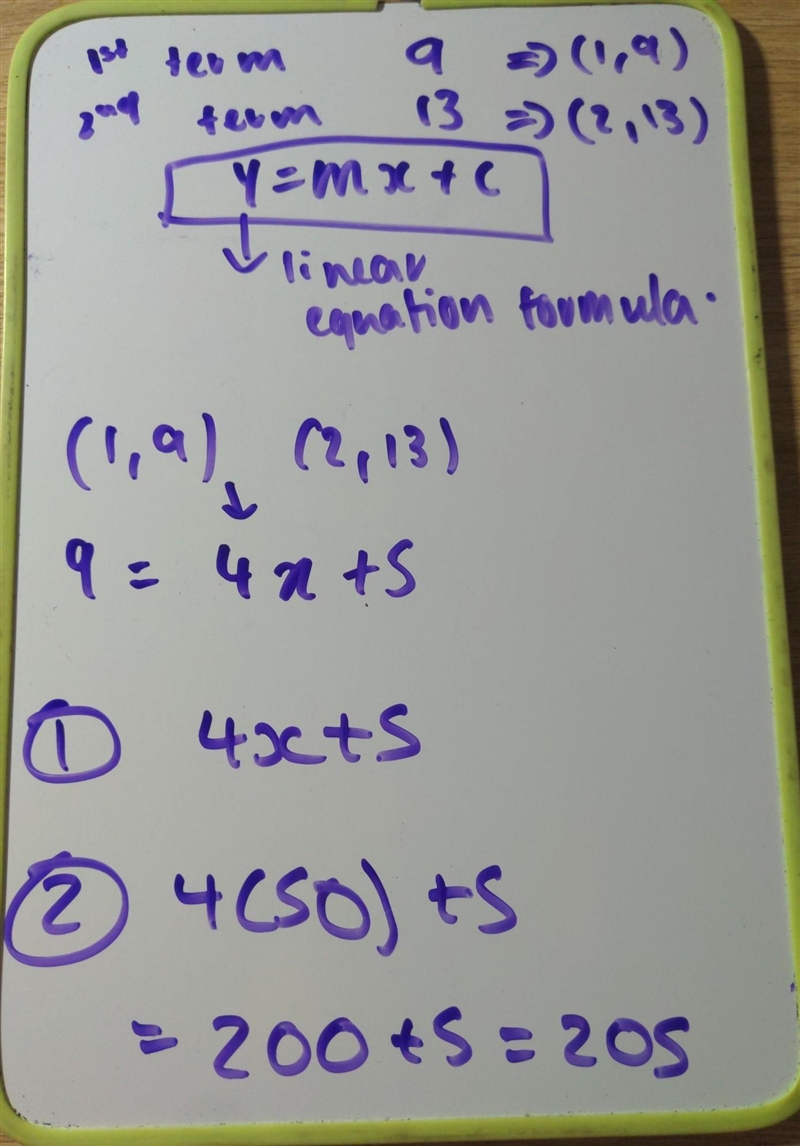 1st term 9 => (1,9)
2nd term 13 => (2,13)
y=mx+c
↓ linear
equation formula.
(1,9) (2,13)
↓
9 = 4x+5
① 4x+5
② 4(50)+5
= 200+5=205